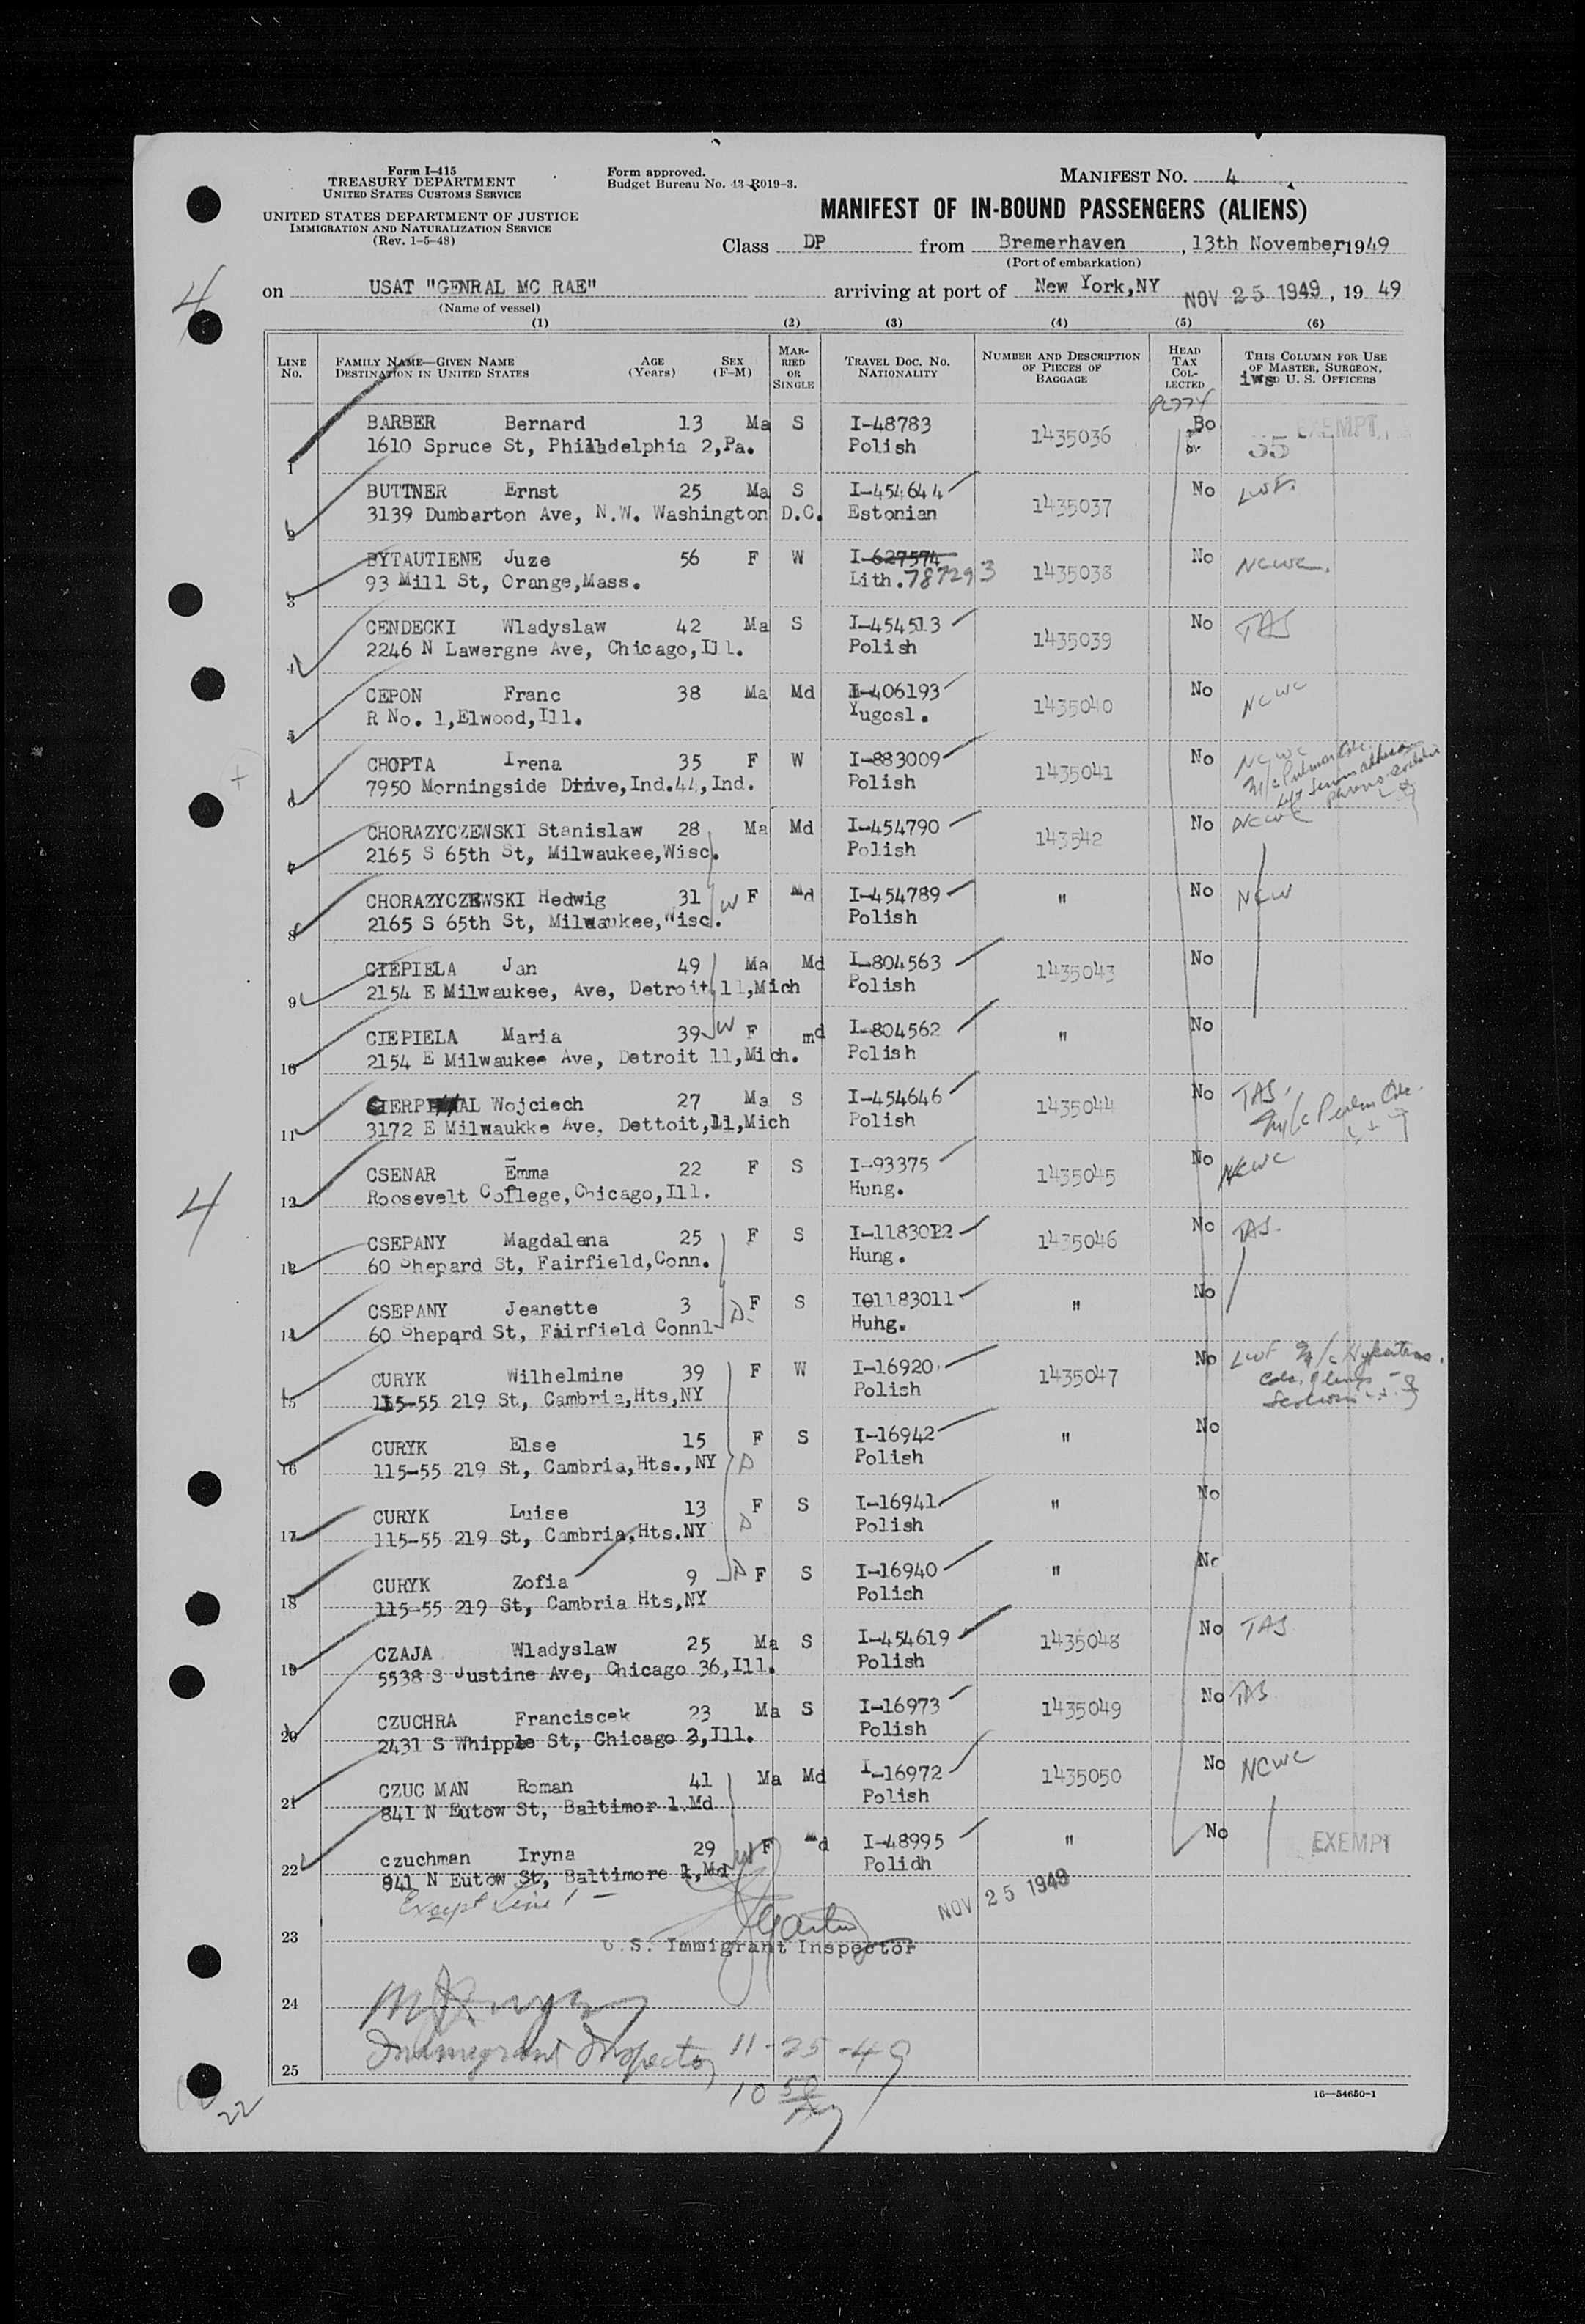 Form I-415
TREASURY DEPARTMENT
UNITED STATES CUSTOMS SERVICE
UNITED STATES DEPARTMENT OF JUSTICE
IMMIGRATION AND NATURALIZATION SERVICE
(Rev. 1-5-48)
Form approved.
Budget Bureau No. 43-R019-3.
MANIFEST NO. 4
MANIFEST OF IN-BOUND PASSENGERS (ALIENS)
Class DP from Bremerhaven , 13th November, 1949
(Port of embarkation)
4
on USAT "GENRAL MC RAE" arriving at port of New York,NY NOV 25 1949 , 19 49
(Name of vessel)
(1) (2) (3) (4) (5) (6)
LINE No. FAMILY NAME—GIVEN NAME DESTINATION IN UNITED STATES AGE (Years) SEX (F-M) MARRIED OR SINGLE TRAVEL DOC. NO. NATIONALITY NUMBER AND DESCRIPTION OF PIECES OF BAGGAGE HEAD TAX COLLECTED THIS COLUMN FOR USE OF MASTER, SURGEON, U. S. OFFICERS
BARBER Bernard 13 Ma S I-48783 1435036 Bo EXEMPT
1 1610 Spruce St, Philadelphia 2,Pa. Polish 35
BUTTNER Ernst 25 Ma S I-454644 1435037 No LWF.
2 3139 Dumbarton Ave, N.W. Washington D.C. Estonian
BYTAUTIENE Juze 56 F W I-627574 1435038 No NCWC.
3 93 Mill St, Orange,Mass. Lith. 787293
CENDECKI Wladyslaw 42 Ma S I-454513 1435039 No TAS
4 2246 N Lawergne Ave, Chicago,Ill. Polish
CEPON Franc 38 Ma Md I-406193 1435040 No NCWC
5 R No. 1,Elwood,Ill. Yugosl.
CHOPTA Irena 35 F W I-883009 1435041 No NCWC
6 7950 Morningside Drive,Ind.44,Ind. Polish
CHORAZYCZEWSKI Stanislaw 28 Ma Md I-454790 143542 No NCWC
7 2165 S 65th St, Milwaukee,Wisc. Polish
CHORAZYCZEWSKI Hedwig 31 W F Md I-454789 " No NCW
8 2165 S 65th St, Milwaukee,Wisc. Polish
CIEPIELA Jan 49 Ma Md I-804563 1435043 No
9 2154 E Milwaukee, Ave, Detroit 11,Mich Polish
CIEPIELA Maria 39 W F md I-804562 " No
10 2154 E Milwaukee Ave, Detroit 11,Mich. Polish
Wojciech 27 Ma S I-454646 1435044 No TAS
11 3172 E Milwaukke Ave, Dettoit,11,Mich Polish
CSENAR Emma 22 F S I-93375 1435045 No NCWC
12 Roosevelt College,Chicago,Ill. Hung.
4
CSEPANY Magdalena 25 F S I-1183012 1435046 No TAS.
13 60 Shepard St, Fairfield,Conn. Hung.
CSEPANY Jeanette 3 D. F S I01183011 " No
14 60 Shepard St, Fairfield Connl Huhg.
CURYK Wilhelmine 39 F W I-16920 1435047 No LWF
15 115-55 219 St, Cambria,Hts,NY Polish
CURYK Else 15 F S I-16942 " No
16 115-55 219 St, Cambria,Hts.,NY D Polish
CURYK Luise 13 F S I-16941 " No
17 115-55 219 St, Cambria,Hts.NY D Polish
CURYK Zofia 9 D F S I-16940 " No
18 115-55 219 St, Cambria Hts,NY Polish
CZAJA Wladyslaw 25 Ma S I-454619 1435048 No TAS
19 5538 S Justine Ave, Chicago 36,Ill. Polish
CZUCHRA Franciscek 23 Ma S I-16973 1435049 No TAS
20 2431 S Whipple St, Chicago 3,Ill. Polish
CZUC MAN Roman 41 Ma Md I-16972 1435050 No NCWC
21 841 N Eutow St, Baltimor 1 Md Polish
czuchman Iryna 29 W F Md I-48995 " No EXEMPT
22 841 N Eutow St, Baltimore 1,Md Polidh
Except Line 1 —
NOV 25 1949
23 U.S. Immigrant Inspector
24
Immigrant Inspector 11-25-49
25
10 50
22
16—54650-1